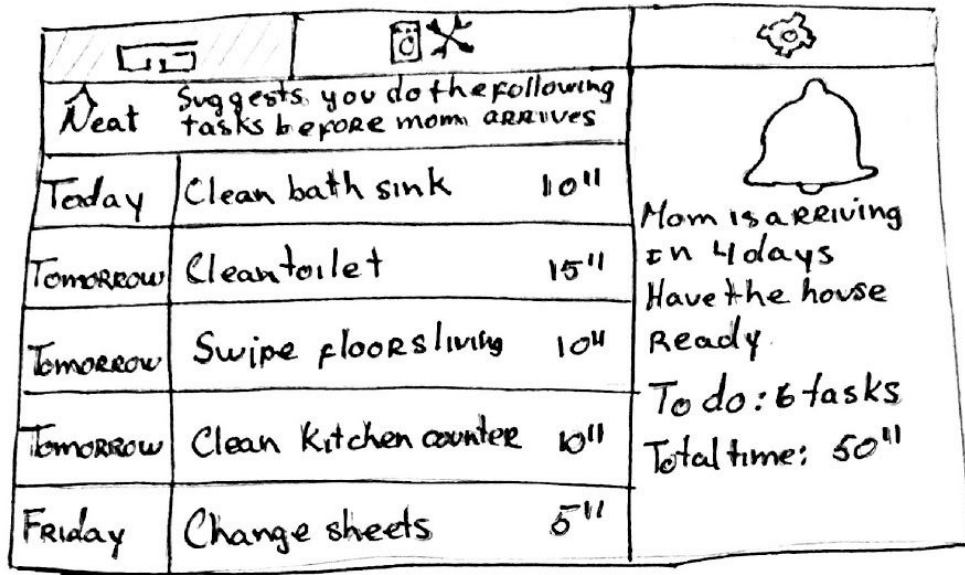 Neat Suggests you do the following
tasks before mom arrives
Today Clean bath sink 10"
Tomorrow Clean toilet 15"
Tomorrow Swipe floors living 10"
Tomorrow Clean Kitchen counter 10"
Friday Change sheets 5"
Mom is arriving
in 4 days
Have the house
Ready
To do: 6 tasks
Total time: 50"